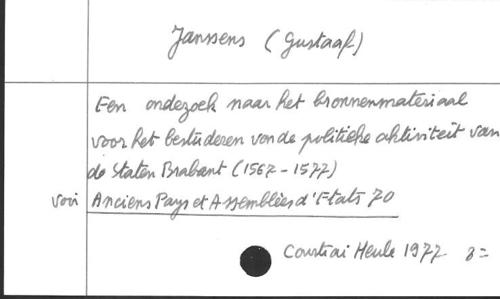 Janssens (Gustaaf)
Een ondezoek naar het bronnenmateriaal
voor het bestuderen van de politieke aktiviteit van
de Staten Brabant (1567-1577)
voir Anciens Pays et Assemblées d'Etats 70
Courtrai Heule 1977 8=